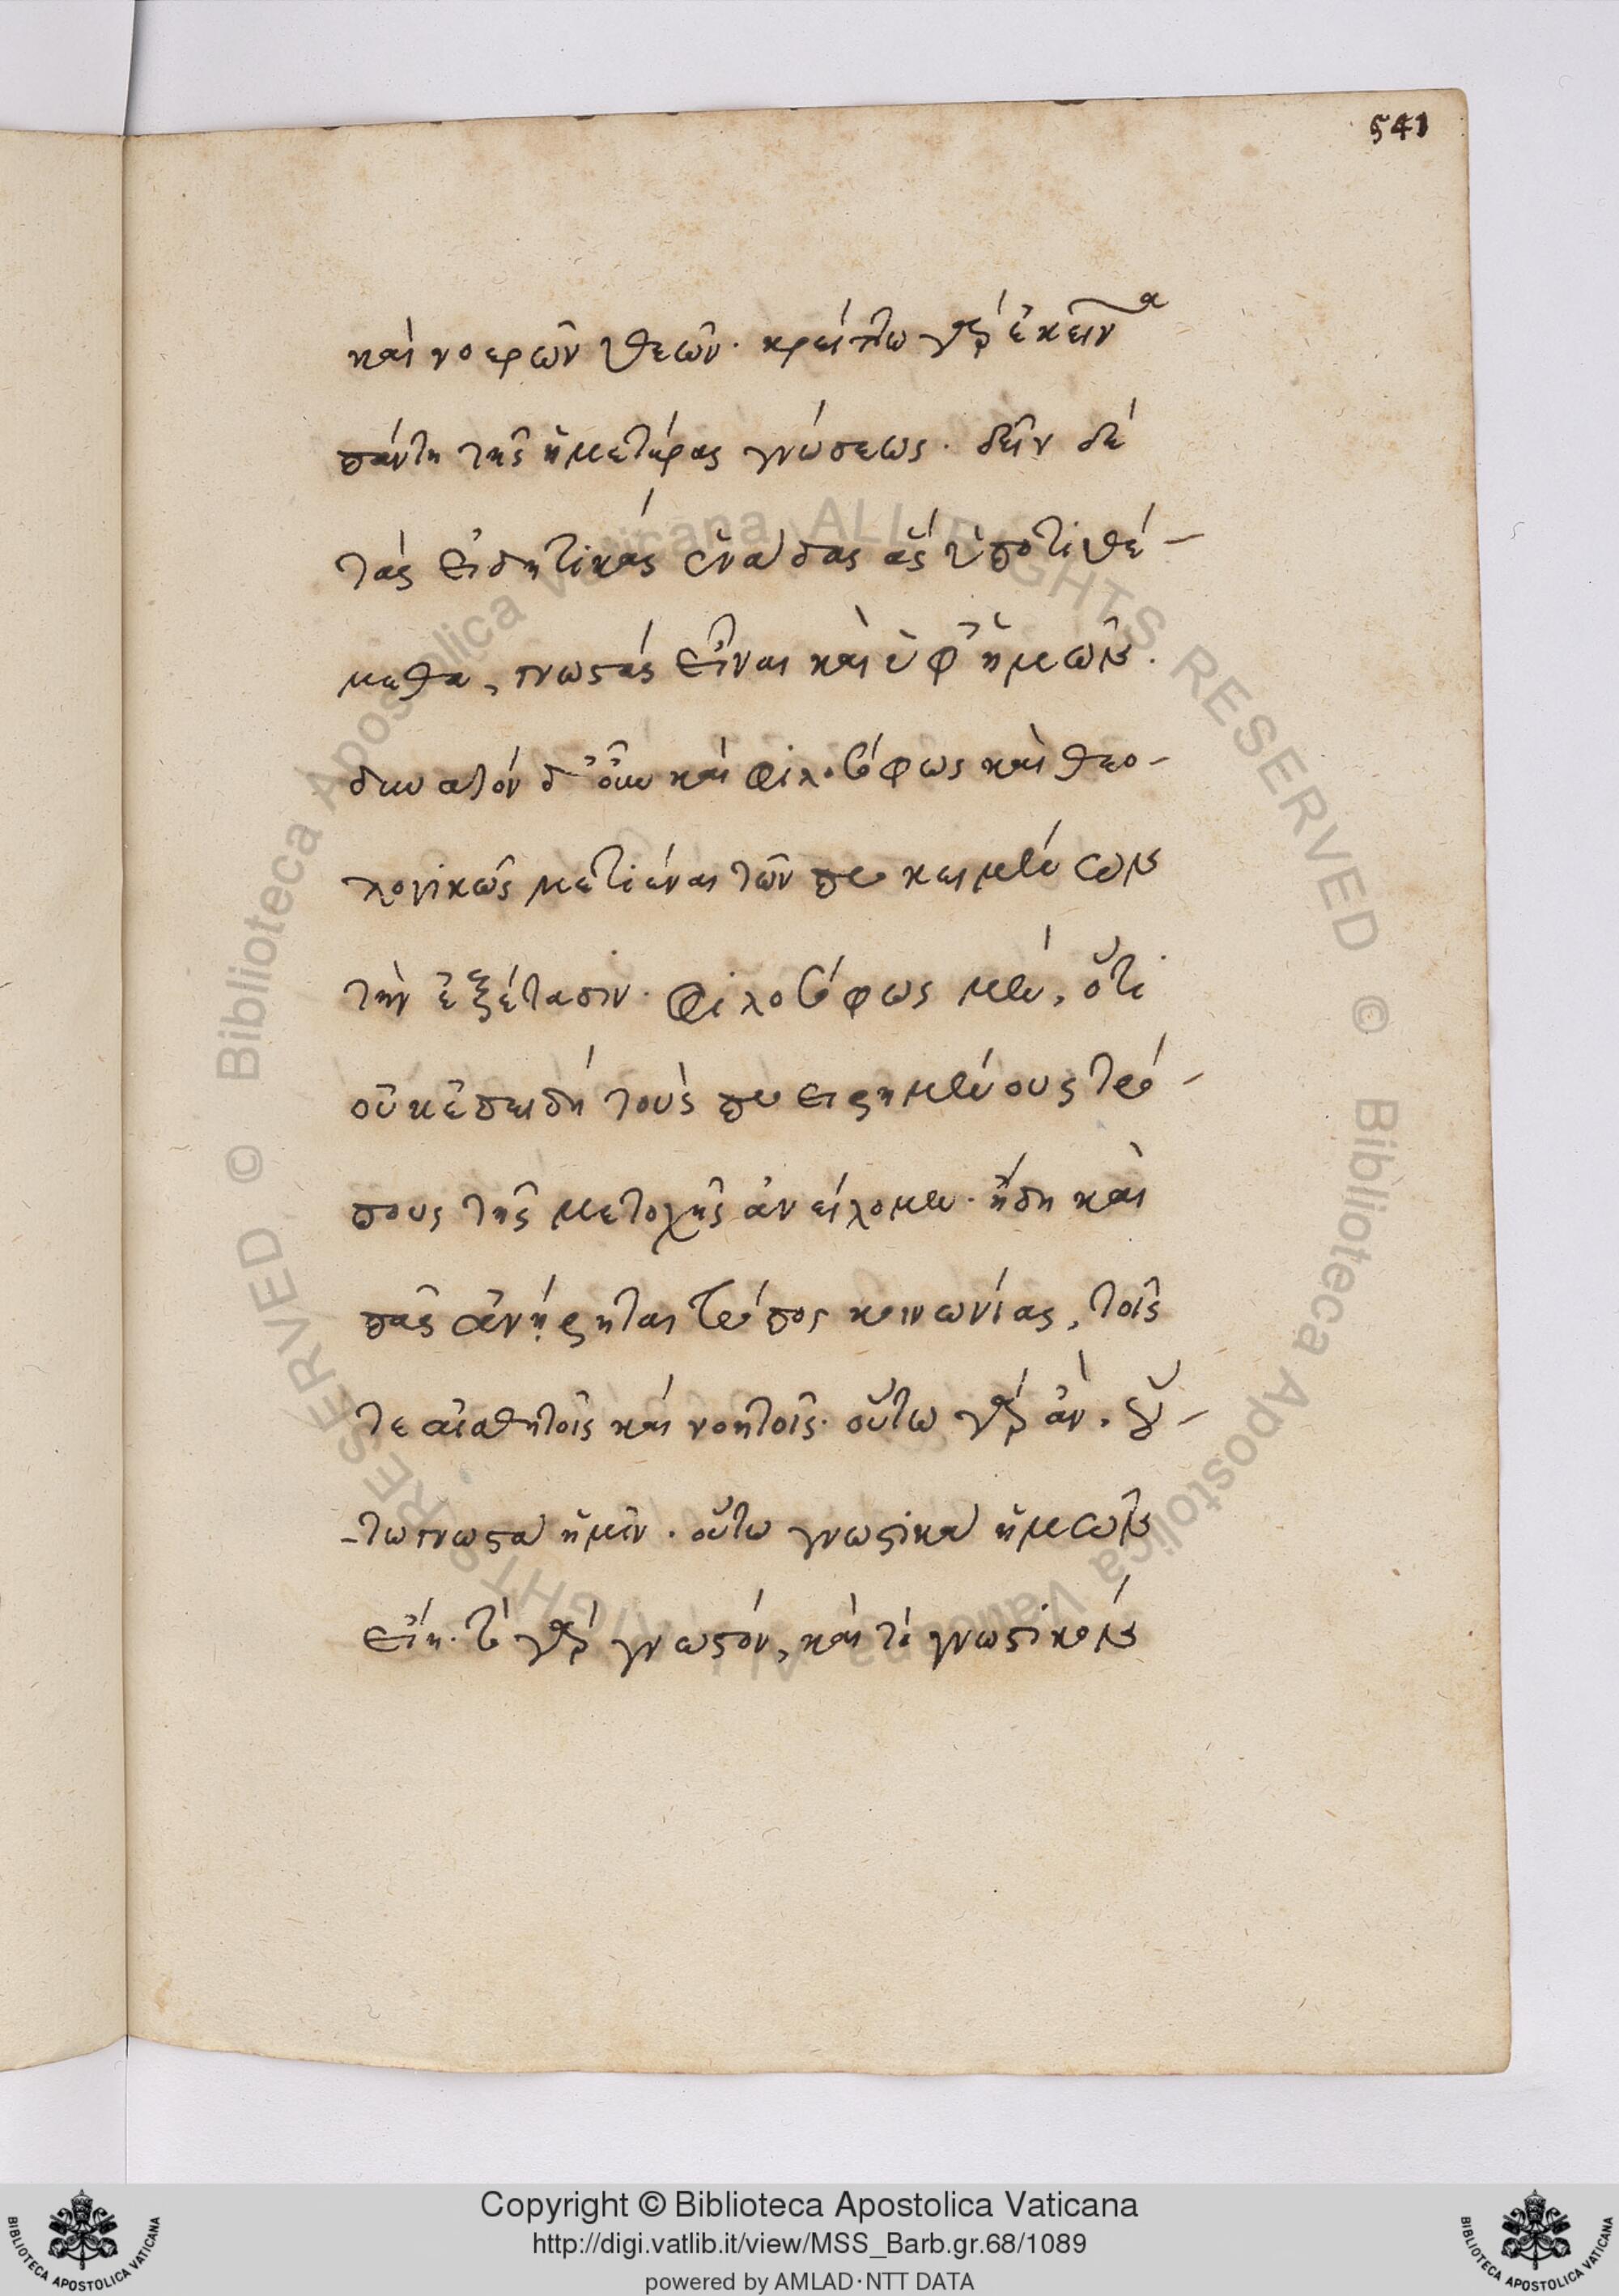 541
καὶ νοερῶν θεῶν· κρείττω γὰρ ἐκεῖνα
πάντη τῆς ἡμετέρας γνώσεως· δεῖν δὲ
τὰς εἰδητικὰς ἑνάδας ἃς ὑποτιθέ-
μεθα, γνωστὰς εἶναι καὶ ὑφ' ἡμῶν.
δυνατὸν δ' οὖν καὶ φιλοσόφως καὶ θεο-
λογικῶς μετιέναι τῶν προκειμένων
τὴν ἐξέτασιν· φιλοσόφως μὲν, ὅτι
οὐκ ἐπειδὴ τοὺς προειρημένους τρό-
πους τῆς μετοχῆς ἀνείλομεν· ἤδη καὶ
πᾶς ἀνῄρηται τρόπος κοινωνίας, τοῖς
τε αἰσθητοῖς καὶ νοητοῖς· οὕτω γὰρ ἂν, οὔ-
-τω γνωστὰ ἡμῖν· οὔτω γνωστικὰ ἡμῶν
εἴη· τὸ γὰρ γνωστὸν, καὶ τὸ γνωστικὸν
Copyright © Biblioteca Apostolica Vaticana
http://digi.vatlib.it/view/MSS_Barb.gr.68/1089
powered by AMLAD·NTT DATA
BIBLIOTECA APOSTOLICA VATICANA
BIBLIOTECA APOSTOLICA VATICANA
© Biblioteca Apostolica Vaticana ALL RIGHTS RESERVED © Biblioteca Apostolica Vaticana ALL RIGHTS RESERVED